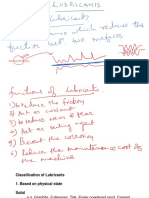 LUBRICANTS
Lubricants
which reduce the
friction bet two surfaces.
functions of Lubricants.
1) to reduce the friction
2) Act as coolant
3) to reduce wear & tear
4) Act as sealing agent
5) Prevent the corrosion
6) reduce the maintenance cost of
the machine
Classification of Lubricants
1. Based on physical state
Solid